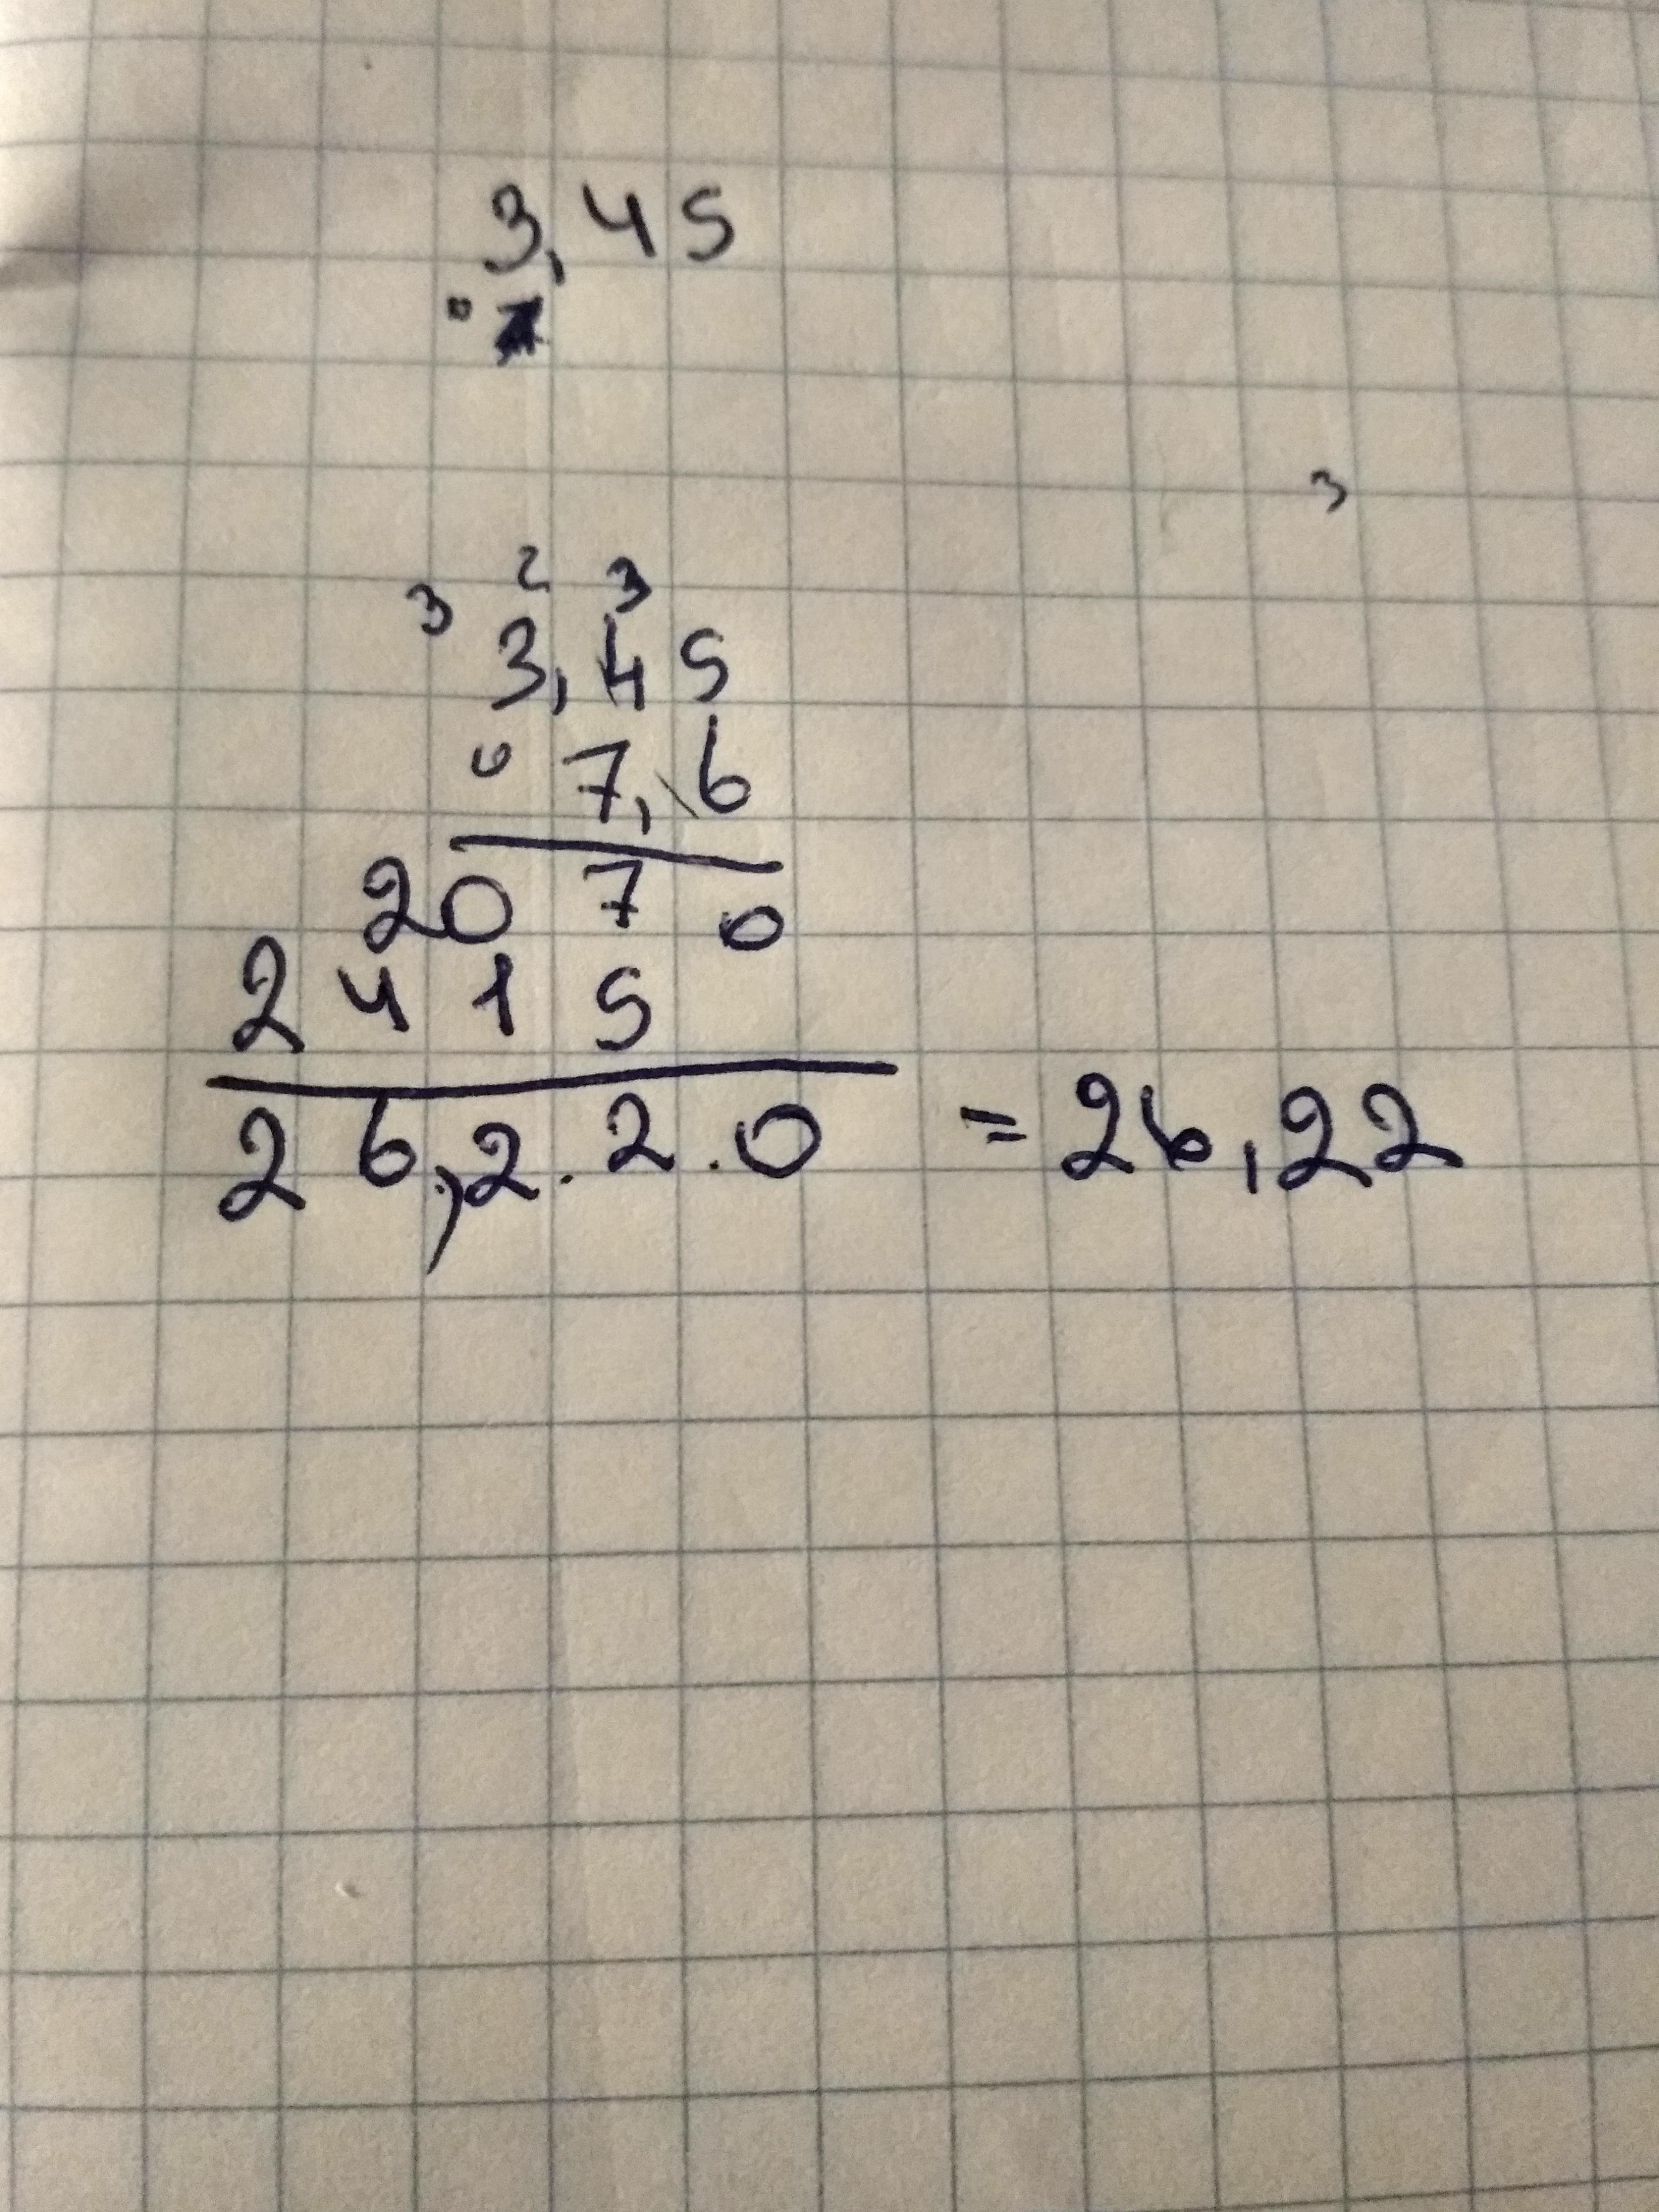 3,45
3
3 2 3
3,45
· 7,6
2070
2415
26,2.2.0 = 26,22